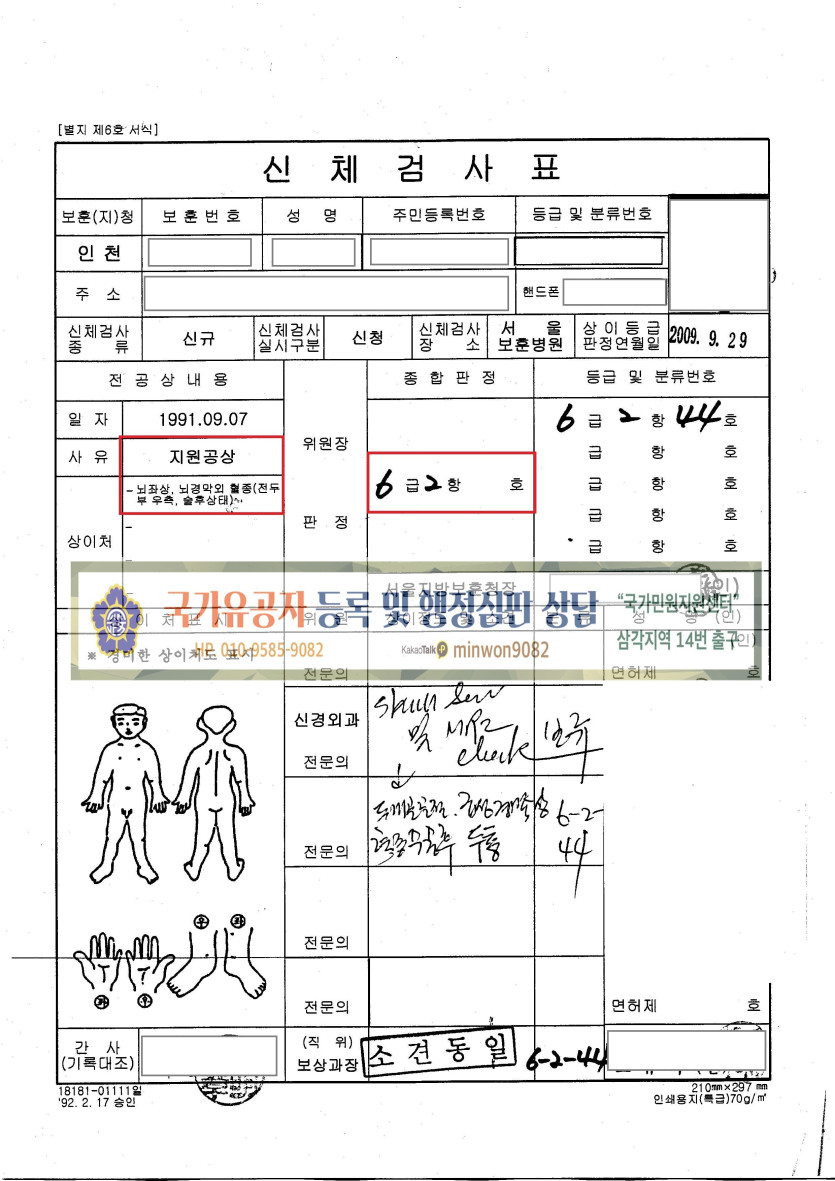 [별지 제6호 서식]
신 체 검 사 표
보훈(지)청 보 훈 번 호 성 명 주민등록번호 등급 및 분류번호
인 천
주 소 핸드폰
신체검사 종 류 신규 신체검사 실시구분 신청 신체검사 장 소 서 울 보훈병원 상 이 등 급 판정연월일 2009. 9. 29
전 공 상 내 용 종 합 판 정 등급 및 분류번호
일 자 1991.09.07 6 급 2 항 44 호
사 유 지원공상 위원장 급 항 호
- 뇌좌상, 뇌경막외 혈종(전두 6 급 2 항 호 급 항 호
부 우측, 술후상태)
상이처 판 정 급 항 호
급 항 호
서울지방보훈청장 (인)
국가유공자 등록 및 행정심판 상담 "국가민원지원센터"
HP 010-9585-9082 KakaoTalk minwon9082 삼각지역 14번 출구
상 이 처 표 시 위 원 성 명 (인)
※ 경미한 상이처도 표시
전문의 면허제 호
신경외과
및 MRI
check 보류
전문의
6-2-
44
두통
전문의
우 좌
전문의
좌 우
전문의 면허제 호
간 사 (직 위)
(기록대조) 보상과장 소견동일 6-2-44
18181-01111일 210㎜×297 ㎜
'92. 2. 17 승인 인쇄용지(특급)70g/㎡